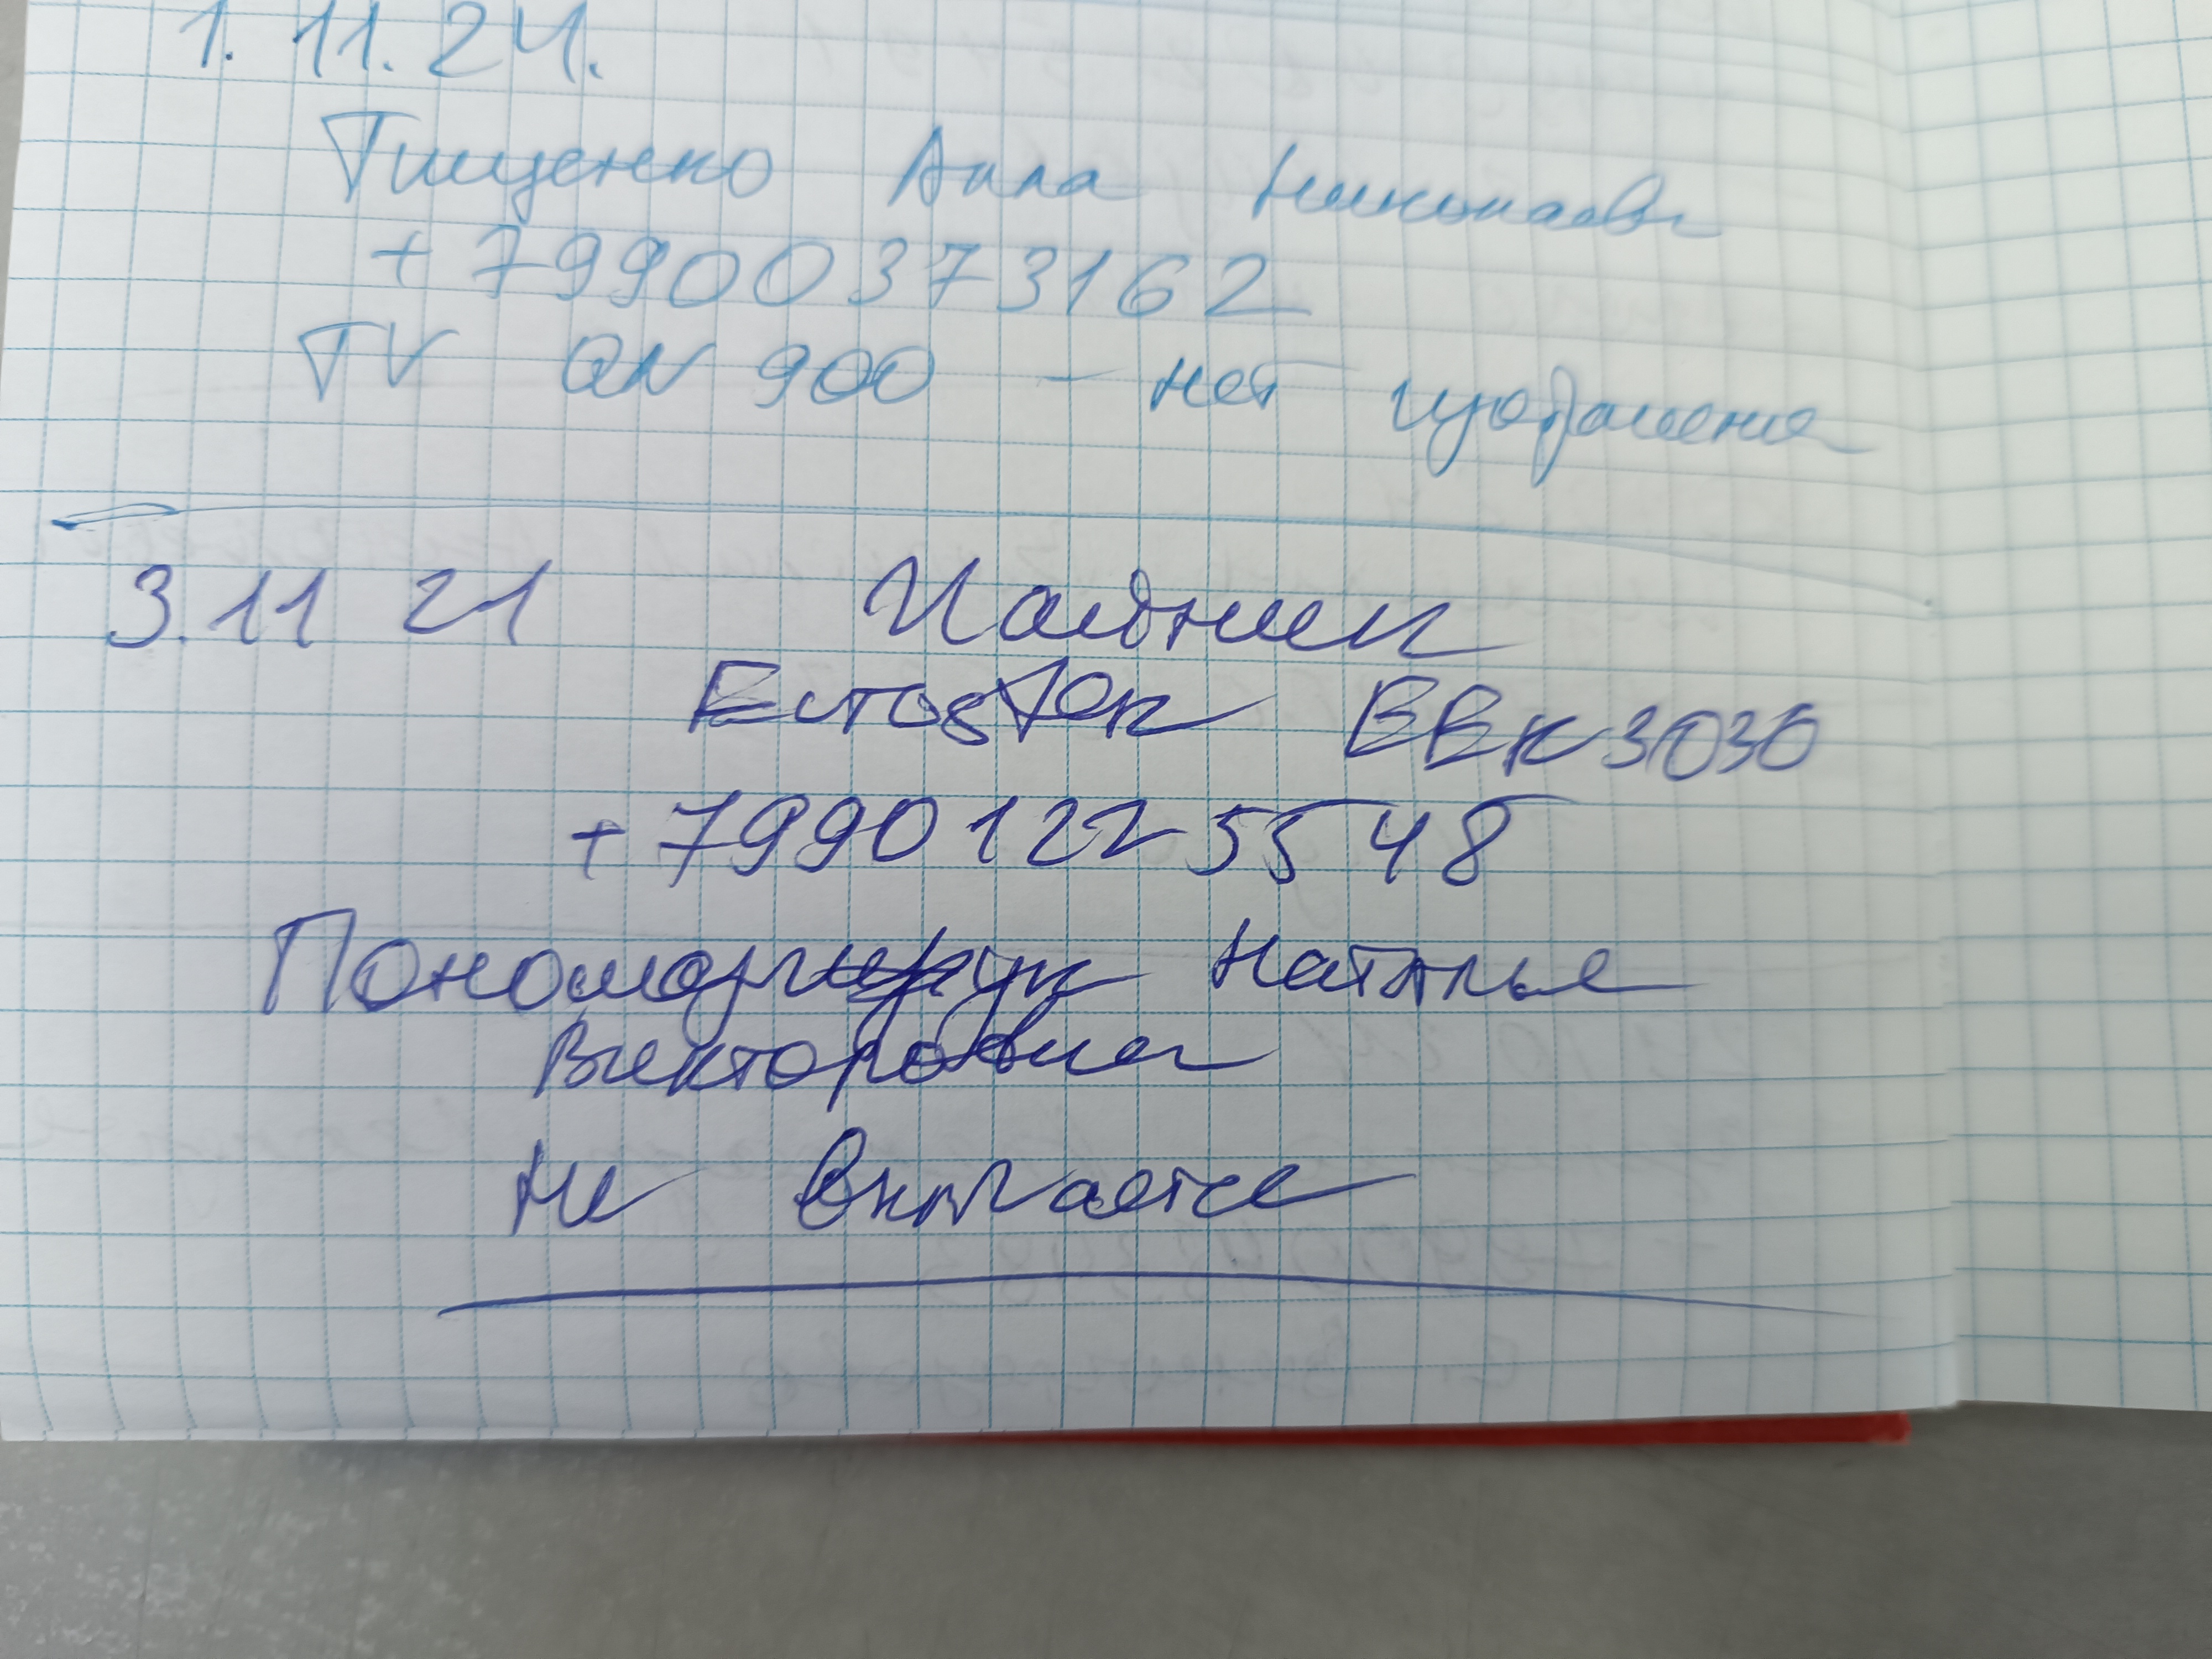 1.11.24.
Тищенко Анна Николаевн
+79900373162
TV QN 900 - нет изображения
3.11 21 Чайник
EcTosTek BBK3030
+79901225548
Наталья
Викторовна
не включается